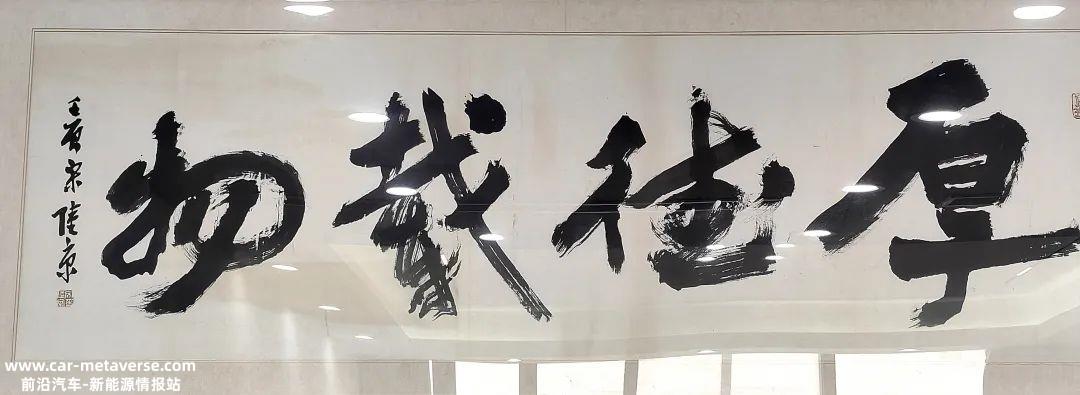 厚德載物
壬寅宋
www.car-metaverse.com
前沿汽车-新能源情报站